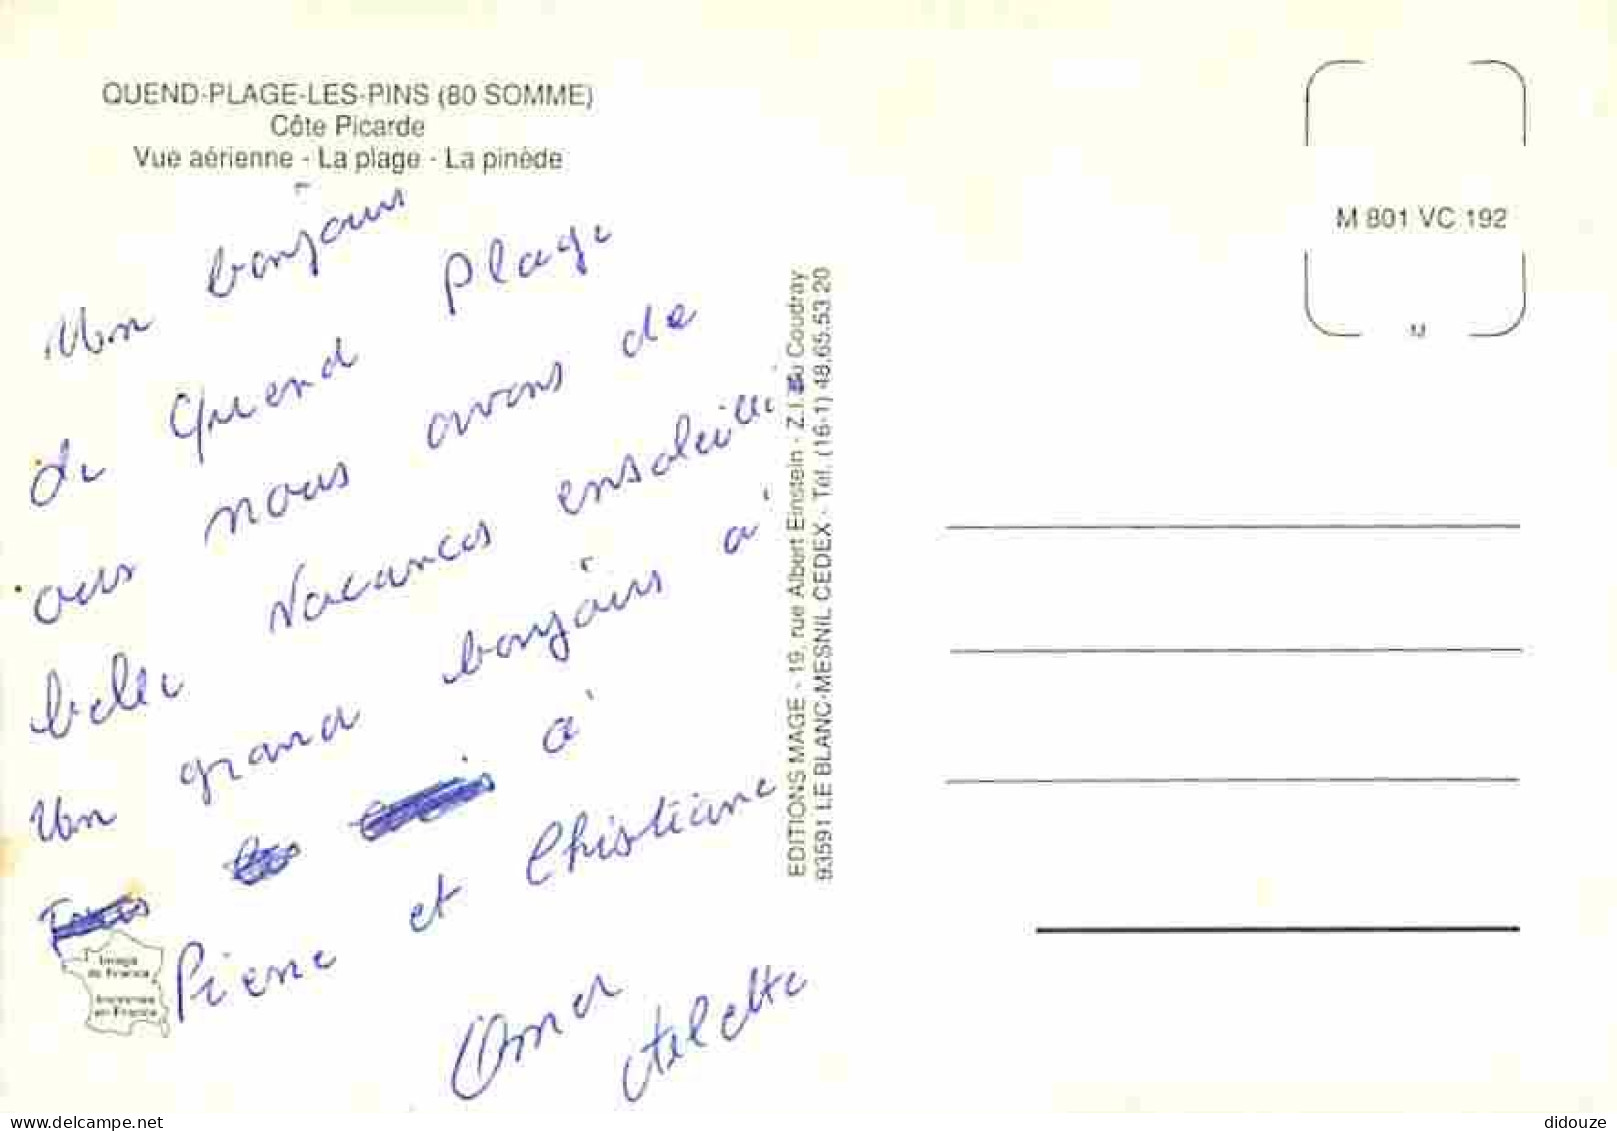 QUEND-PLAGE-LES-PINS (80 SOMME)
Côte Picarde
Vue aérienne - La plage - La pinède
M 801 VC 192
Un bonjour
de Quend Plage
ou nous avons de
belles vacances
Un grand bonjour à
à
Pierre et Christiane
Omer
EDITIONS MAGE - 19, rue Albert Einstein - Z.I. du Coudray
93591 LE BLANC-MESNIL CEDEX - Tél. (16-1) 48.65.53.20
Image
de France
en France
delcampe.net
didouze